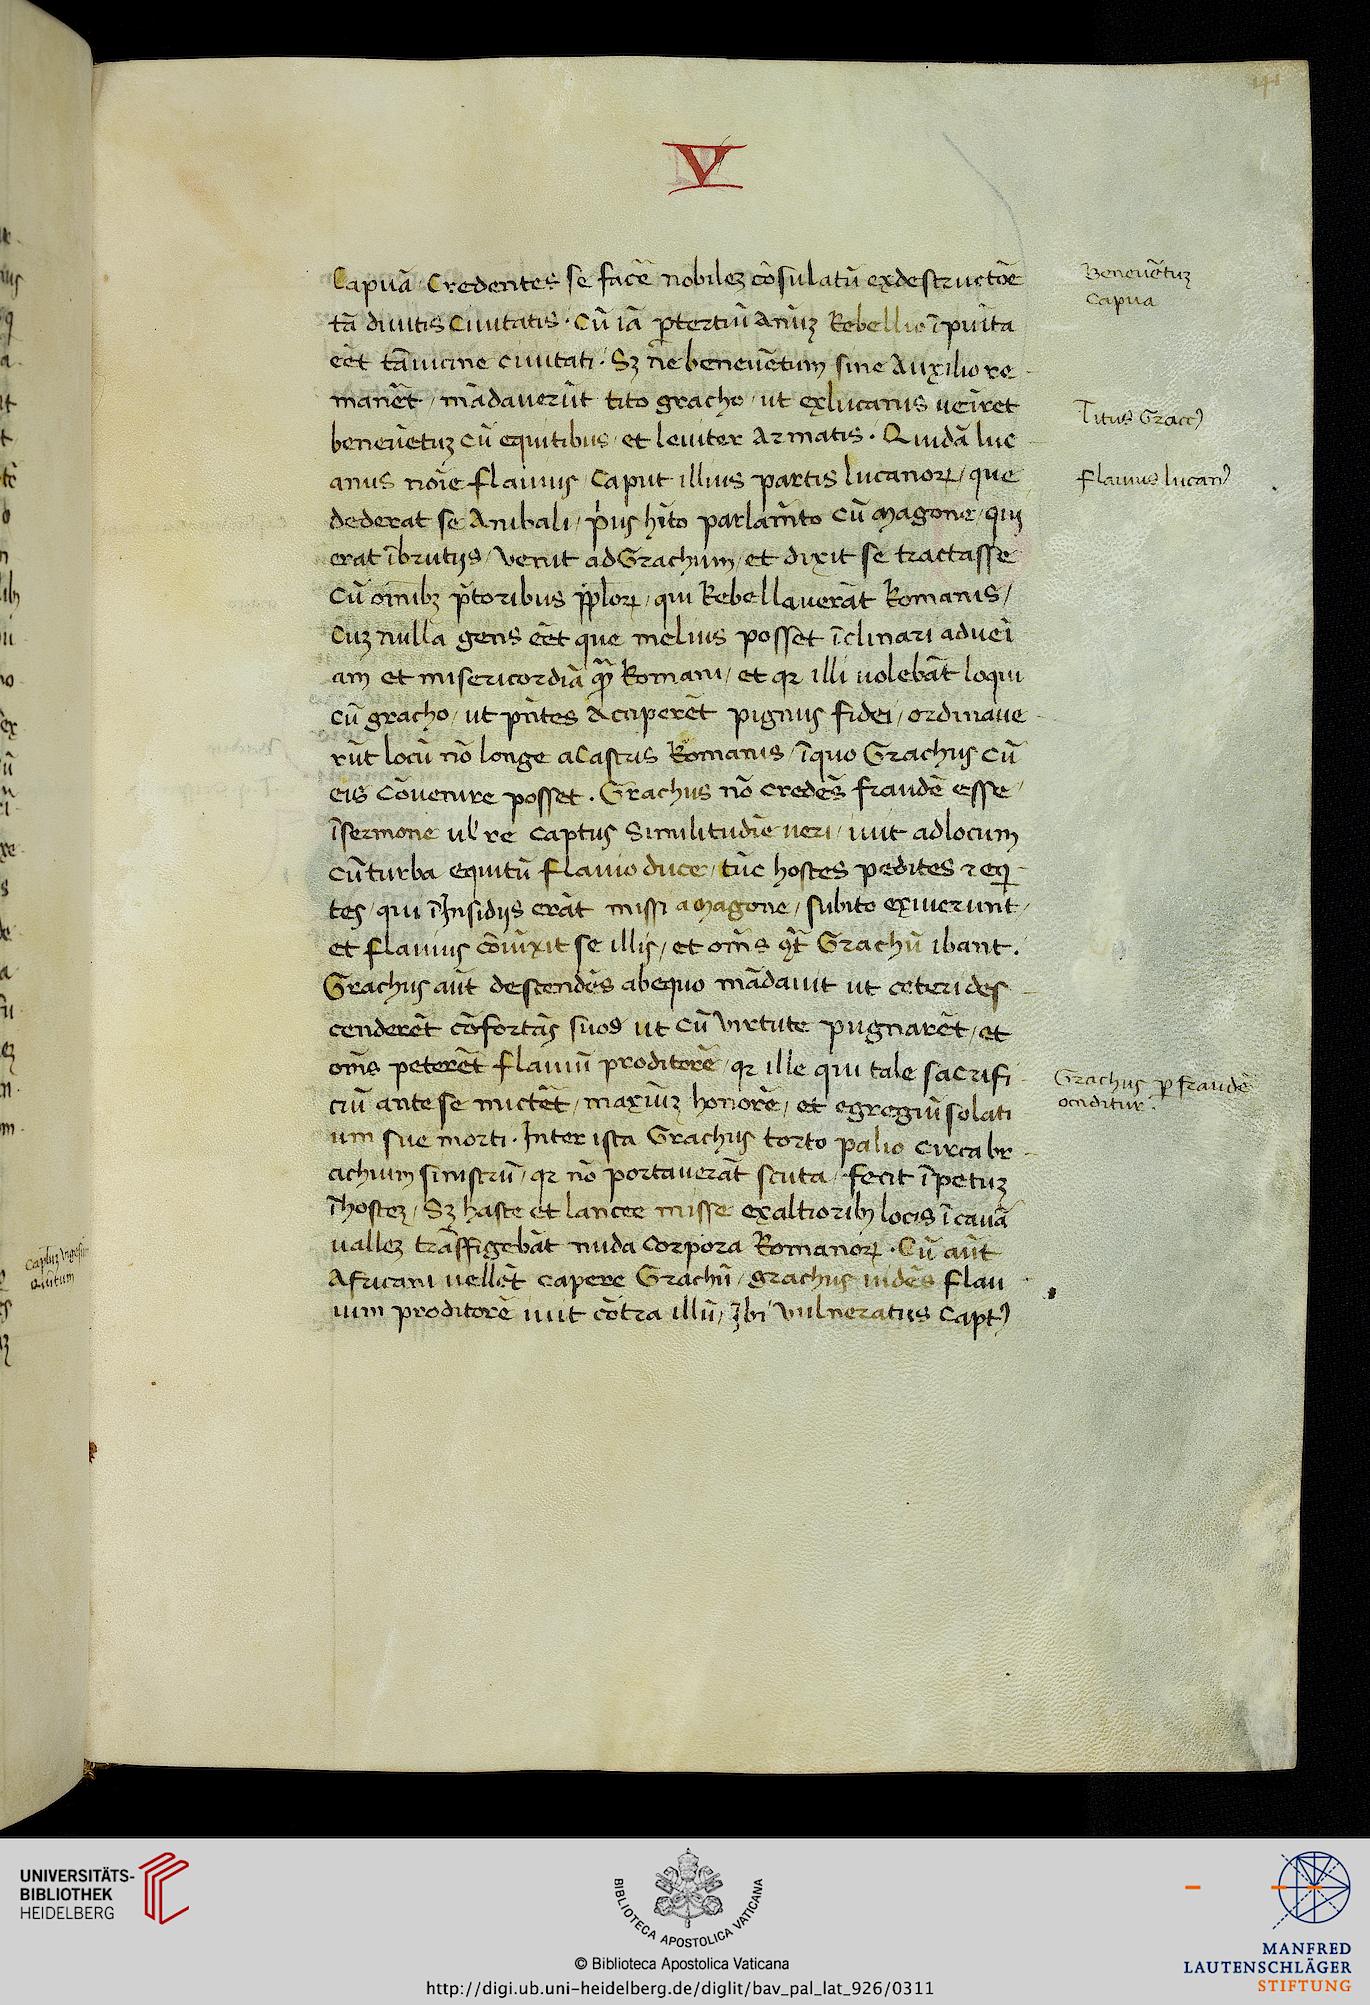 141
V
Capuā. Credentes se facē nobilez cōsulatū exdestructōe
tā diuitis Ciuitatis. Cū iā p̱tertiū Aniuz Rebellio īpuita
eēt tāuicine ciuitati. Sz ne beneuētum sine Auxilio re
manēt / mādauerūt tito gracho / ut exlucanis ueiret
beneuētuz cū equitibus / et leuiter Armatis. Quidā luc
anus noīe flauius / Caput illius partis lucanoꝝ / que
dederat se Anibali / p̄us hīto parlam̄to cū magone / qui
erat ībrutijs / Venit adGrachum / et dixit se tractasse
cū om̄ibz p̄toribus pp̄loꝝ / qui Rebellauerāt Romanis /
Cuz nulla gens eēt que melius posset īclinari adueī
am et misericordiā qm̄ Romani / et qꝛ illi uolebāt loqui
cū gracho / ut pn̄tes Acciperēt pignus fidei / ordinaue
rūt locū nō longe acastris Romanis / īquo Grachus cū
eis Cōuenire posset. Grachus nō credēs fraudē esse
īsermone ul̓ re captus similitudīe ueri / iuit adlocum
cūturba equitū flauio duce / tūc hostes pedites ⁊ eqi
tes / qui īInsidijs erāt missi amagone / subito exiuerunt /
et flauius cōiūxit se illis / et om̄s 9t̄ Grachū ibant.
Grachus aūt descendēs abequo mādauit ut ceteri des
cenderēt cōfortās suos ut cū virtute pugnarēt / et
om̄s peterēt flauiū proditorē / qꝛ ille qui tale sacrifi
ciū ante se mictēt / maxiuz honorē / et egregiū solati
um sue morti. Inter ista Grachus torto palio circa br
achium sinistrū / qꝛ nō portauerāt scuta / fecit īpetuz
īhostez / Sz haste et lancee misse exaltioribꝫ locis īcauā
uallez trāffigebāt nuda corpora Romanoꝝ. Cū aūt
Africani uellēt capere Grachū / grachus uidēs flau
ium proditorē iuit cōtra illū / Ibi Vulneratus Capt9
Beneuētuz
Capua
Titus Gracc9
flauius lucan9
Grachus p̱ fraudē
occiditur.
UNIVERSITÄTS-
BIBLIOTHEK
HEIDELBERG
BIBLIOTECA APOSTOLICA VATICANA
© Biblioteca Apostolica Vaticana
http://digi.ub.uni-heidelberg.de/diglit/bav_pal_lat_926/0311
MANFRED
LAUTENSCHLÄGER
STIFTUNG